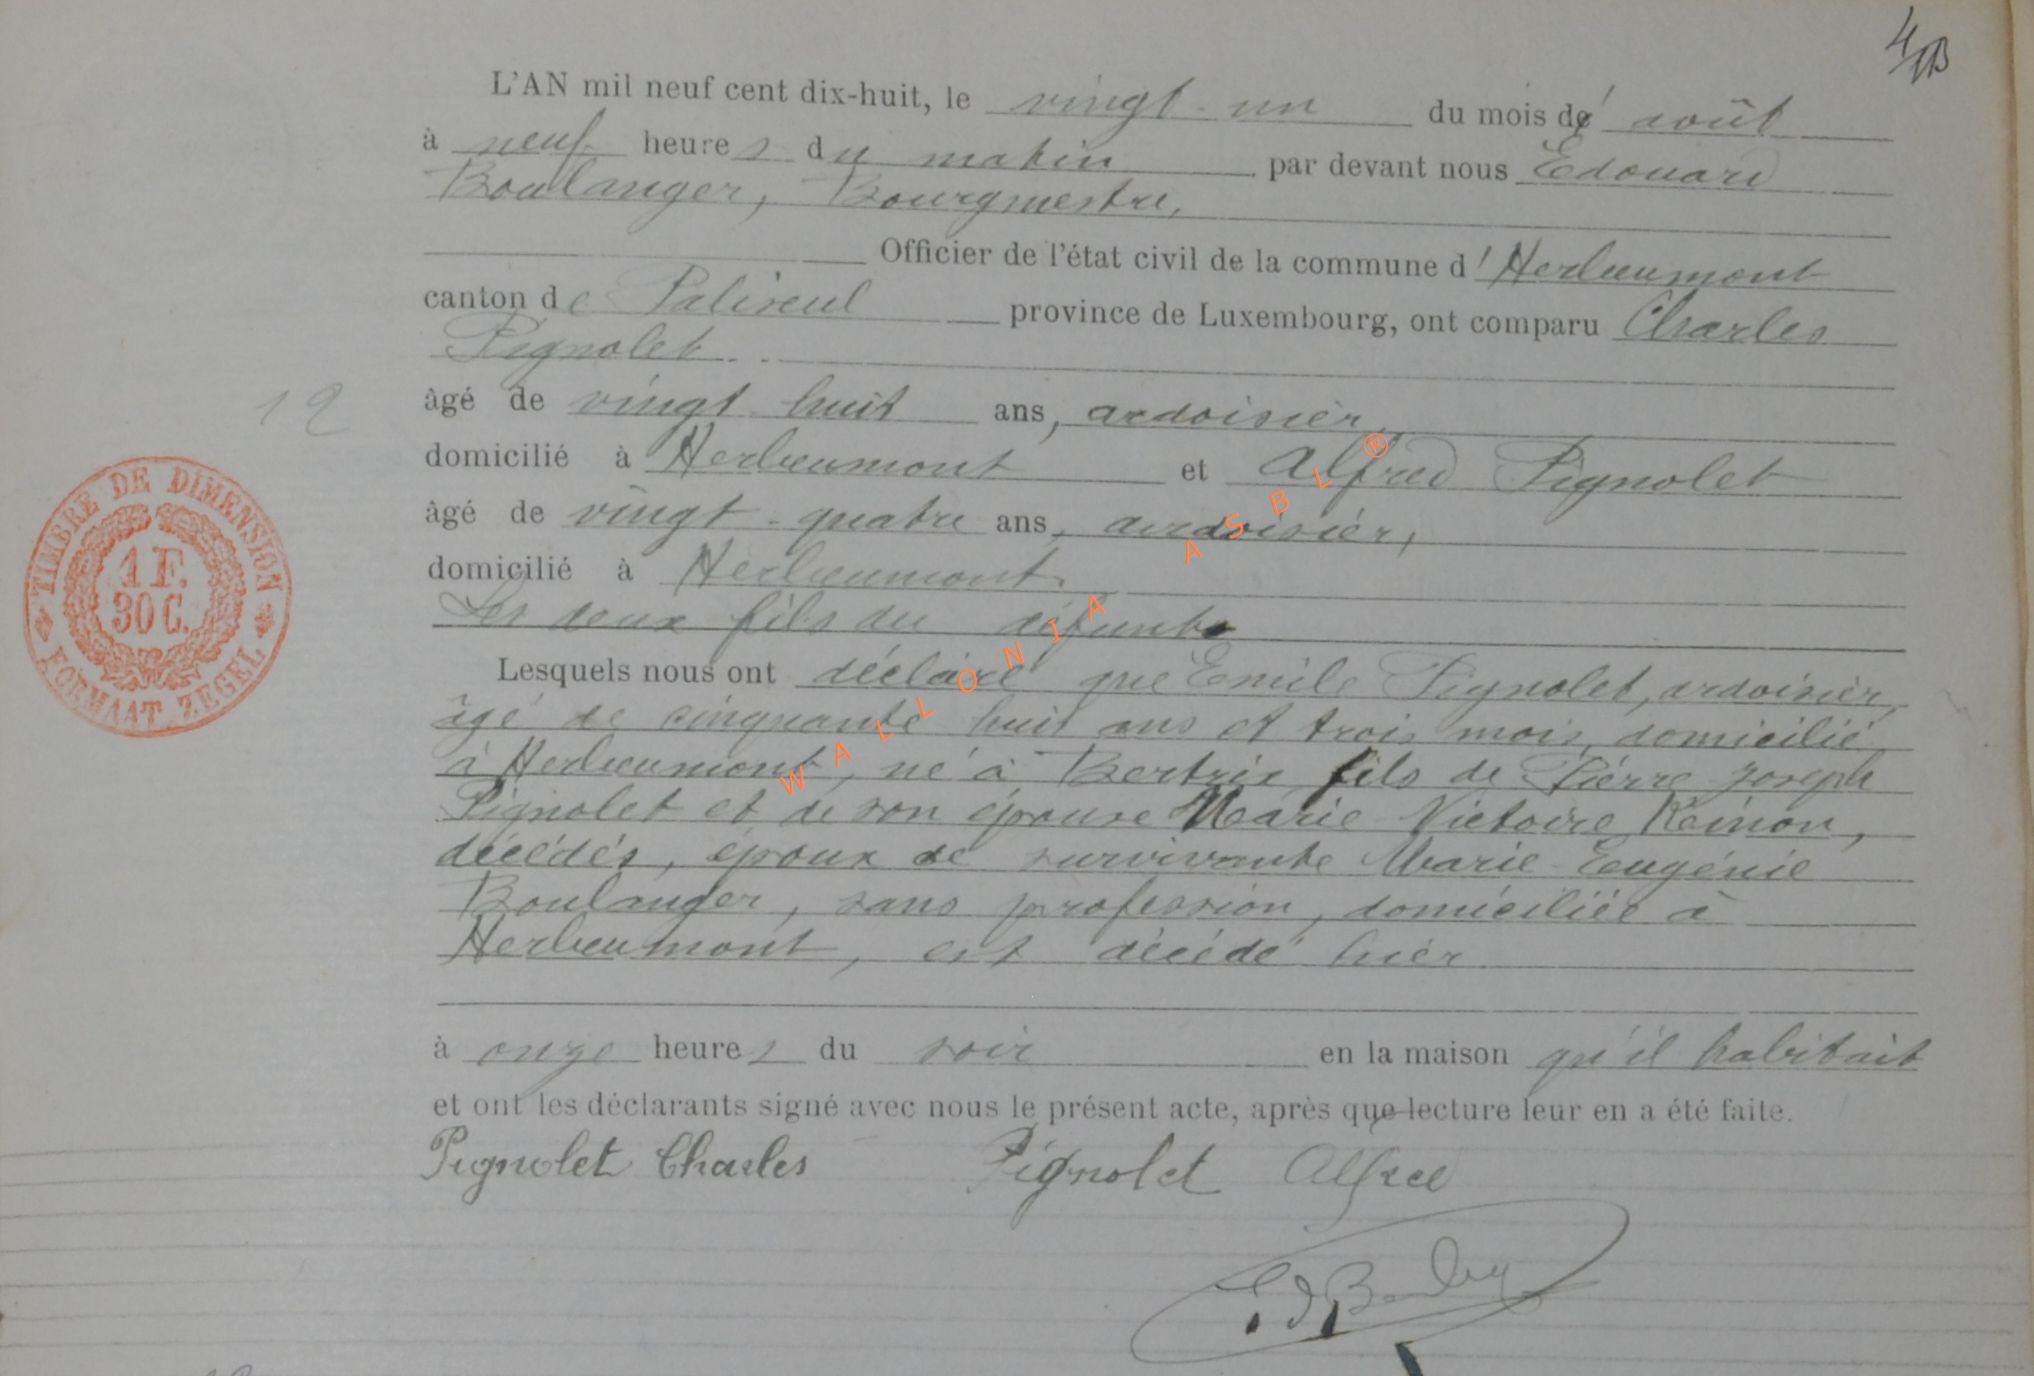 4
L'AN mil neuf cent dix-huit, le vingt-un du mois d' août
à neuf heures du matin par devant nous Edouard
Boulanger, Bourgmestre,
Officier de l'état civil de la commune d'Herbeumont
canton de Paliseul province de Luxembourg, ont comparu Charles
Pignolet
âgé de vingt huit ans, ardoisier,
domicilié à Herbeumont et Alfred Pignolet
âgé de vingt-quatre ans, ardoisier,
domicilié à Herbeumont.
Les deux fils du défunt
Lesquels nous ont déclaré que Emile Pignolet, ardoisier,
âgé de cinquante huit ans et trois mois, domicilié
à Herbeumont, né à Bertrix fils de Pierre Joseph
Pignolet et de son épouse Marie Victoire Rémon,
décédés, époux de survivante Marie-Eugénie
Boulanger, sans profession, domiciliée à
Herbeumont, est décédé hier
à onze heures du soir en la maison qu'il habitait
et ont les déclarants signé avec nous le présent acte, après que lecture leur en a été faite.
Pignolet Charles Pignolet Alfred
12
TIMBRE DE DIMENSION
1 F.
30 C.
FORMAAT ZEGEL
WALLONIA ASBL ®